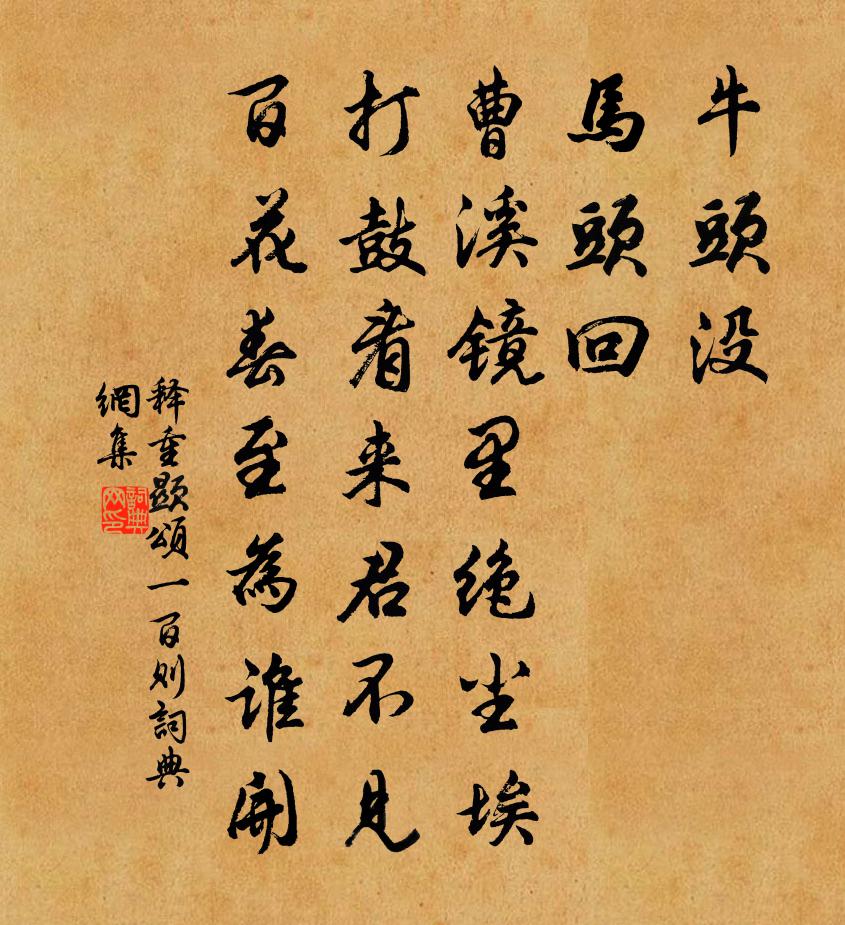 牛頭没
馬頭回
曹溪镜里绝尘埃
打鼓看来君不見
百花春至為谁開
释重顯頌一百则詞典
網集
詞典
网印